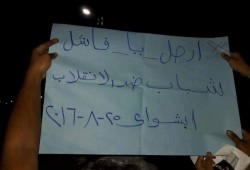 ارحل يا فاشل
شباب ضد الانقلاب
ابشواى ٢٥-٨-٢٠١٦